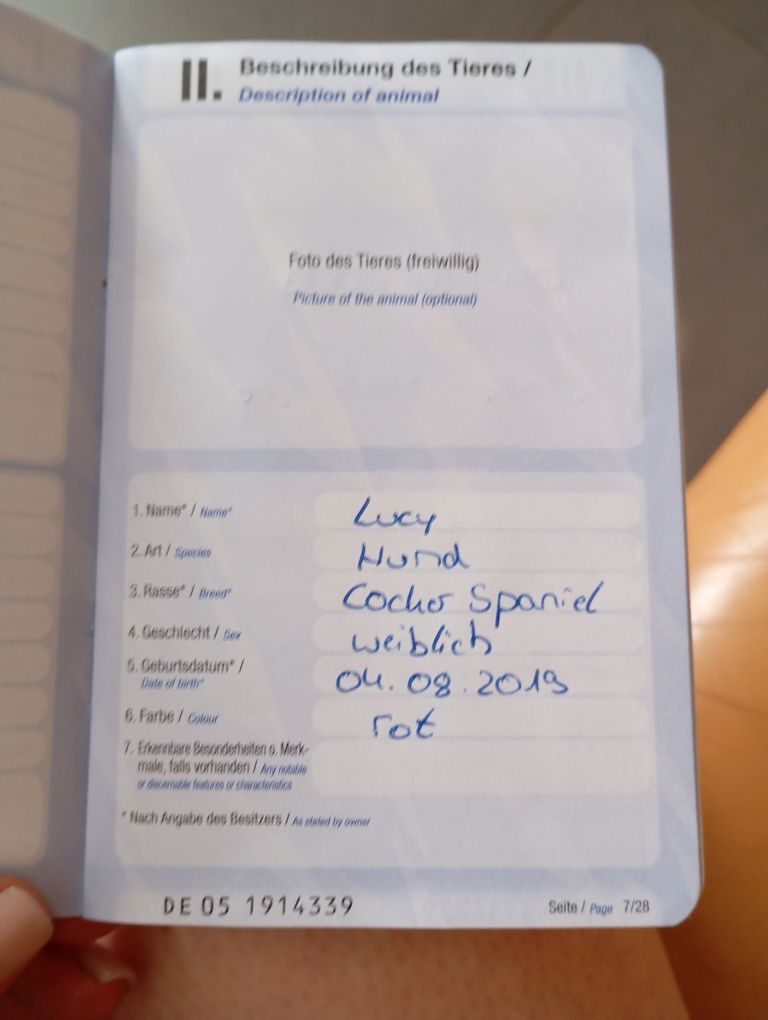 II. Beschreibung des Tieres /
Description of animal
Foto des Tieres (freiwillig)
Picture of the animal (optional)
1. Name* / Name* Lucy
2. Art / Species Hund
3. Rasse* / Breed* Cocker Spaniel
4. Geschlecht / Sex weiblich
5. Geburtsdatum* /
Date of birth* 04.08.2019
6. Farbe / Colour rot
7. Erkennbare Besonderheiten o. Merk-
male, falls vorhanden / Any notable
or discernable features or characteristics
* Nach Angabe des Besitzers / As stated by owner
DE 05 1914339 Seite / Page 7/28